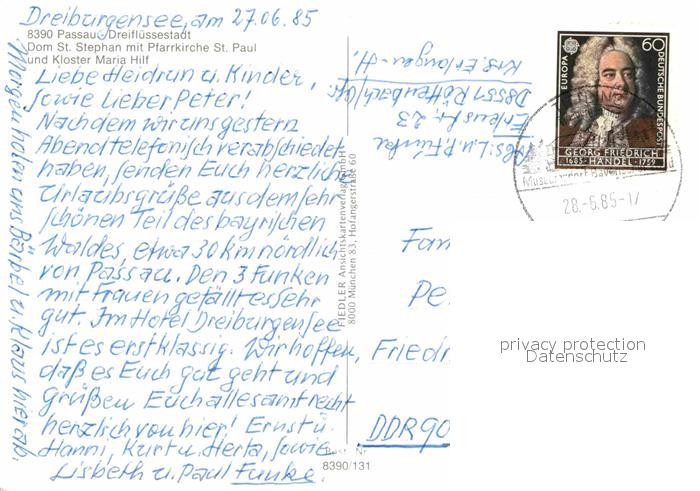 Dreiburgensee, am 27.06.85
8390 Passau Dreiflüssestadt
Dom St. Stephan mit Pfarrkirche St. Paul
und Kloster Maria Hilf
Liebe Heidrun u. Kinder,
sowie lieber Peter!
Nachdem wir uns gestern
Abend telefonisch verabschiedet
haben, senden Euch herzliche
Urlaubsgrüße aus dem sehr
schönen Teil des bayrischen
Waldes, etwa 30 km nördlich
von Passau. Den 3 Funken
mit Frauen gefällt es sehr
gut. Im Hotel Dreiburgensee
ist es erstklassig. Wir hoffen,
daß es Euch gut geht und
grüßen Euch allesamt recht
herzlich von hier! Ernst u.
Hanni, Kurt u. Herta, sowie
Lisbeth u. Paul Funke.
Morgen holen uns Bärbel u. Klaus hier ab.
Abs. L. u. P. Funke
Erlenstr. 23
D8551 Röttenbach
Krs. Erlangen-H.
FIEDLER Ansichtskartenverlag GmbH
8000 München 83, Hofangerstraße 60
Best. Nr.
8390/131
EUROPA
60
DEUTSCHE BUNDESPOST
GEORG FRIEDRICH
1685-HÄNDEL-1759
28.-6.85-17
Fam
Pe
Friedr
DDR 90
privacy protection
Datenschutz